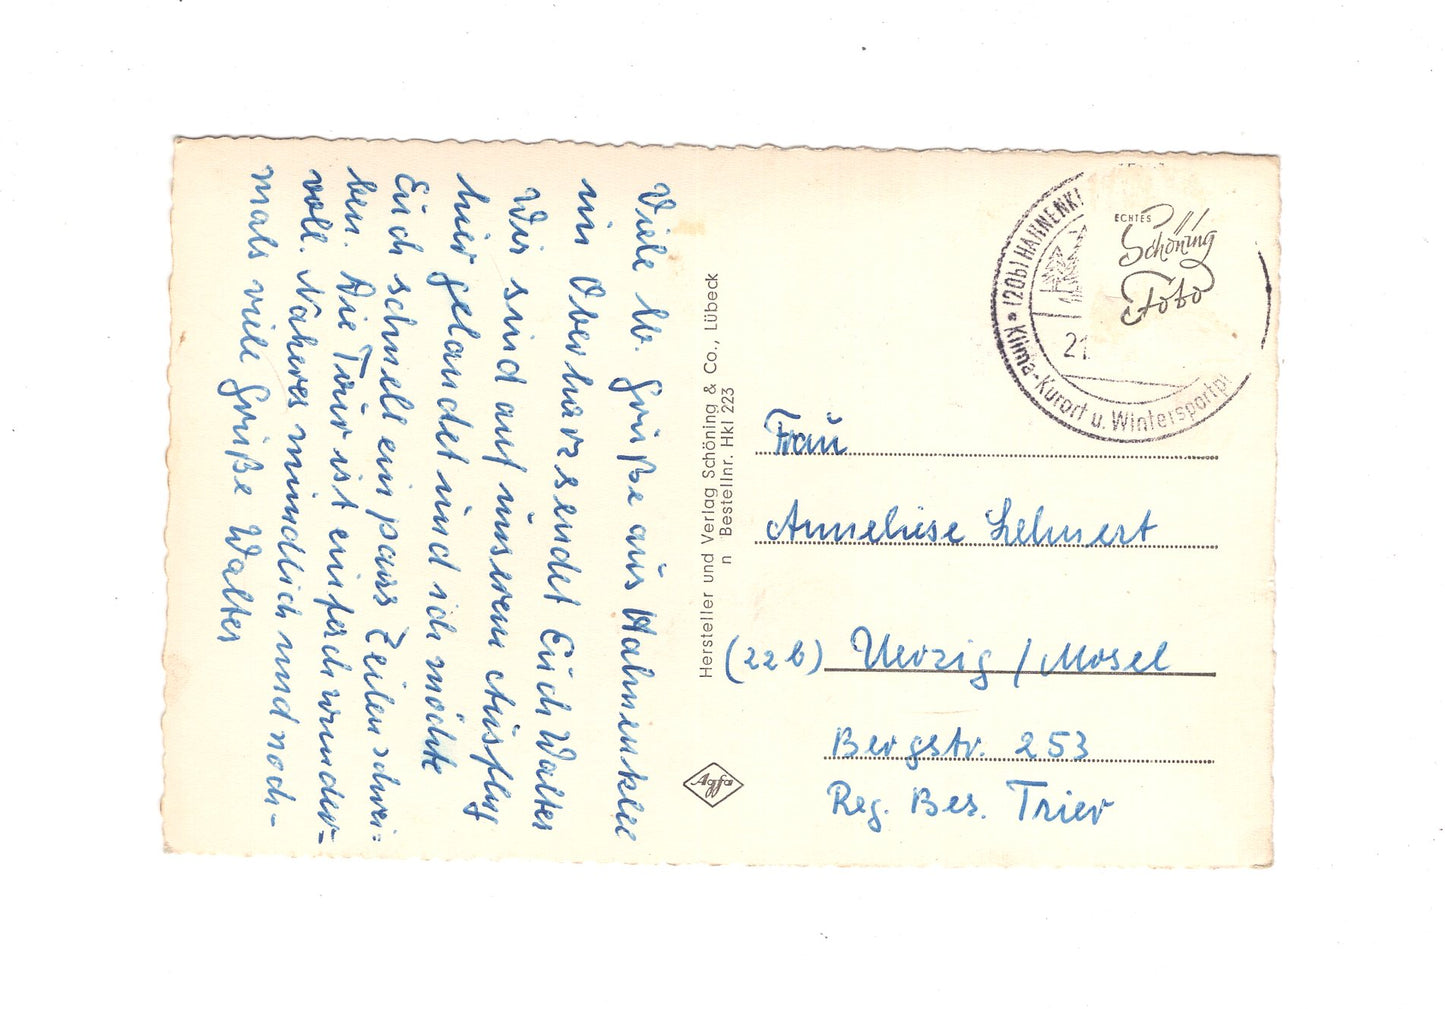 Viele lb. Grüße aus Hahnenklee
im Oberharz sendet Euch Walter
Wir sind auf unserem Ausflug
hier gelandet und ich möchte
Euch schnell ein paar Zeilen schrei=
ben. Die Tour ist einfach wunder-
voll. Näheres mündlich und noch-
mals viele Grüße Walter
Hersteller und Verlag Schöning & Co., Lübeck
n Bestellnr. Hkl 223
Agfa
(20b) HAHNENKL
Klima-Kurort u. Wintersportpl
21
ECHTES
Schöning
Foto
Frau
Anneliese Lehnert
(22b) Uerzig / Mosel
Bergstr. 253
Reg. Bes. Trier